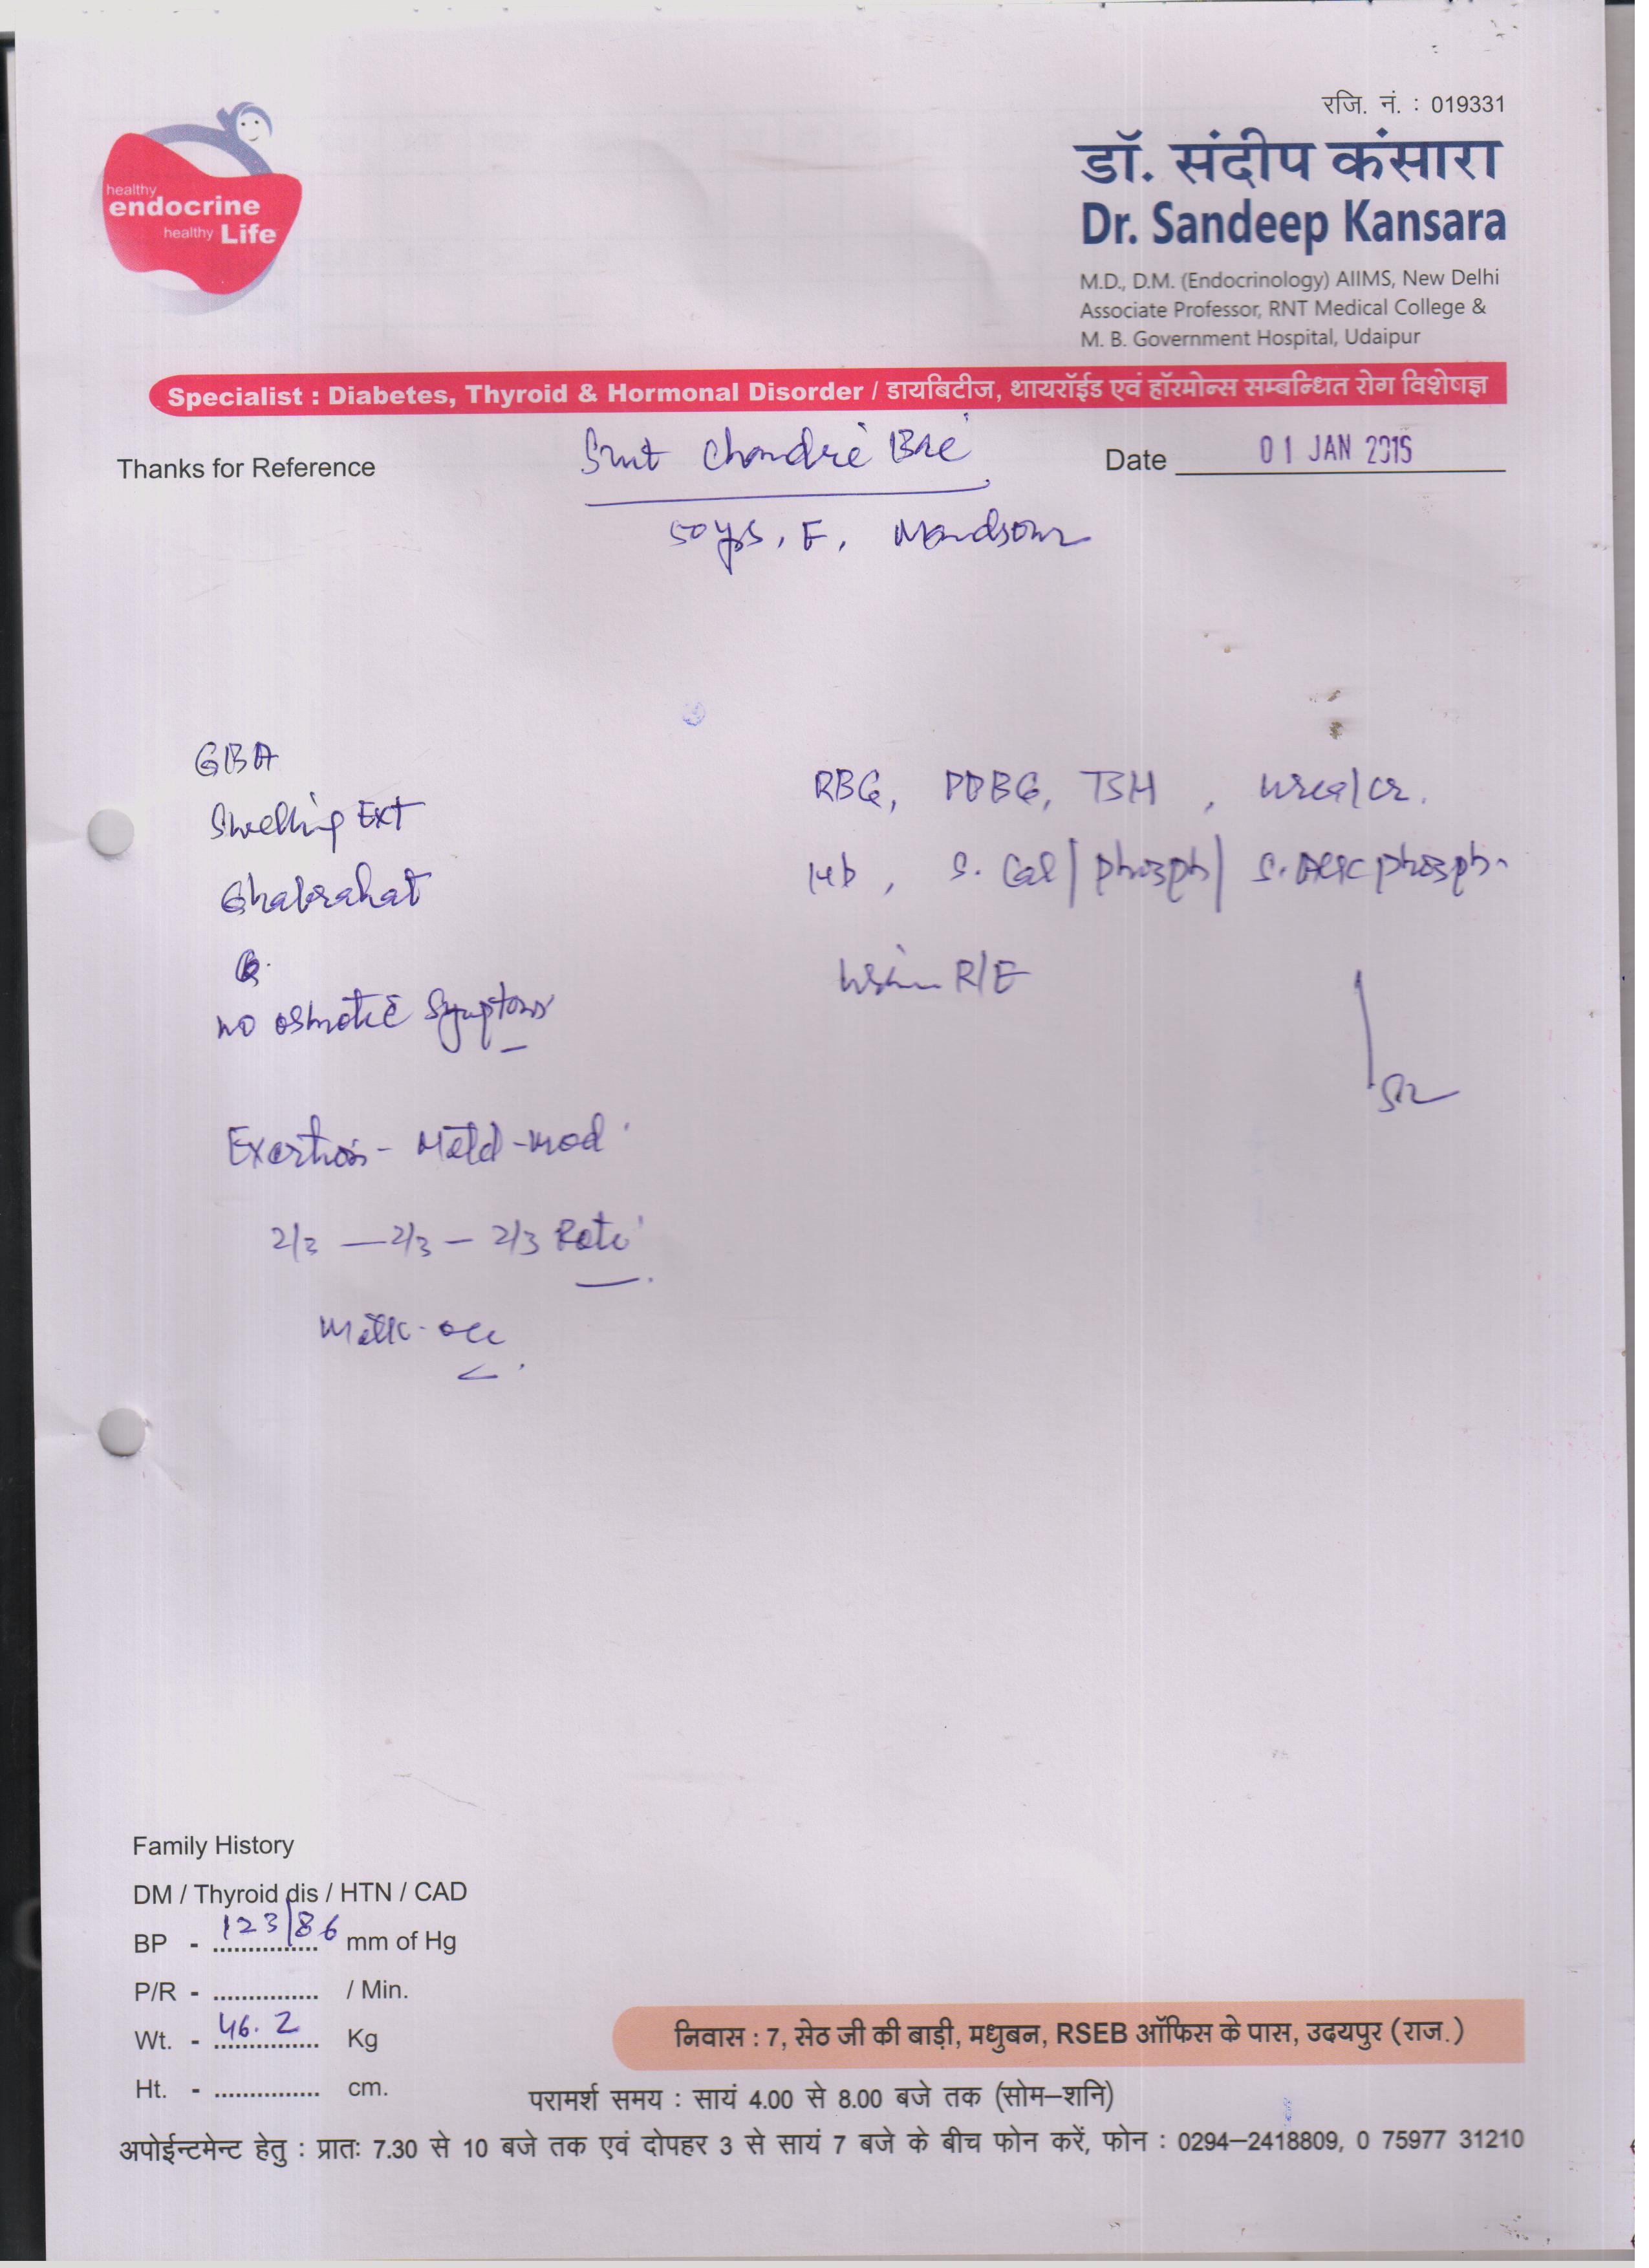 रजि. नं. : 019331
healthy
endocrine
healthy Life
डॉ. संदीप कंसारा
Dr. Sandeep Kansara
M.D., D.M. (Endocrinology) AIIMS, New Delhi
Associate Professor, RNT Medical College &
M. B. Government Hospital, Udaipur
Specialist : Diabetes, Thyroid & Hormonal Disorder / डायबिटीज, थायरॉईड एवं हॉरमोन्स सम्बन्धित रोग विशेषज्ञ
Thanks for Reference
Smt Chandri Bai
Date 01 JAN 2015
50 yrs, F, Mandsour
GBA
Swelling Ext
Ghabrahat
no osmotic Symptoms
Exertion - Mild-mod
2/3 — 2/3 — 2/3 Roti
Milk - occ
RBG, PPBG, TSH, urea/cr.
Hb, S. Cal / phosph / S. Alk phosph.
Urine R/E
Family History
DM / Thyroid dis / HTN / CAD
BP - 123/86 mm of Hg
P/R - ............... / Min.
Wt. - 46.2 Kg
Ht. - ............... cm.
निवास : 7, सेठ जी की बाड़ी, मधुबन, RSEB ऑफिस के पास, उदयपुर (राज.)
परामर्श समय : सायं 4.00 से 8.00 बजे तक (सोम–शनि)
अपोईन्टमेन्ट हेतु : प्रातः 7.30 से 10 बजे तक एवं दोपहर 3 से सायं 7 बजे के बीच फोन करें, फोन : 0294–2418809, 0 75977 31210